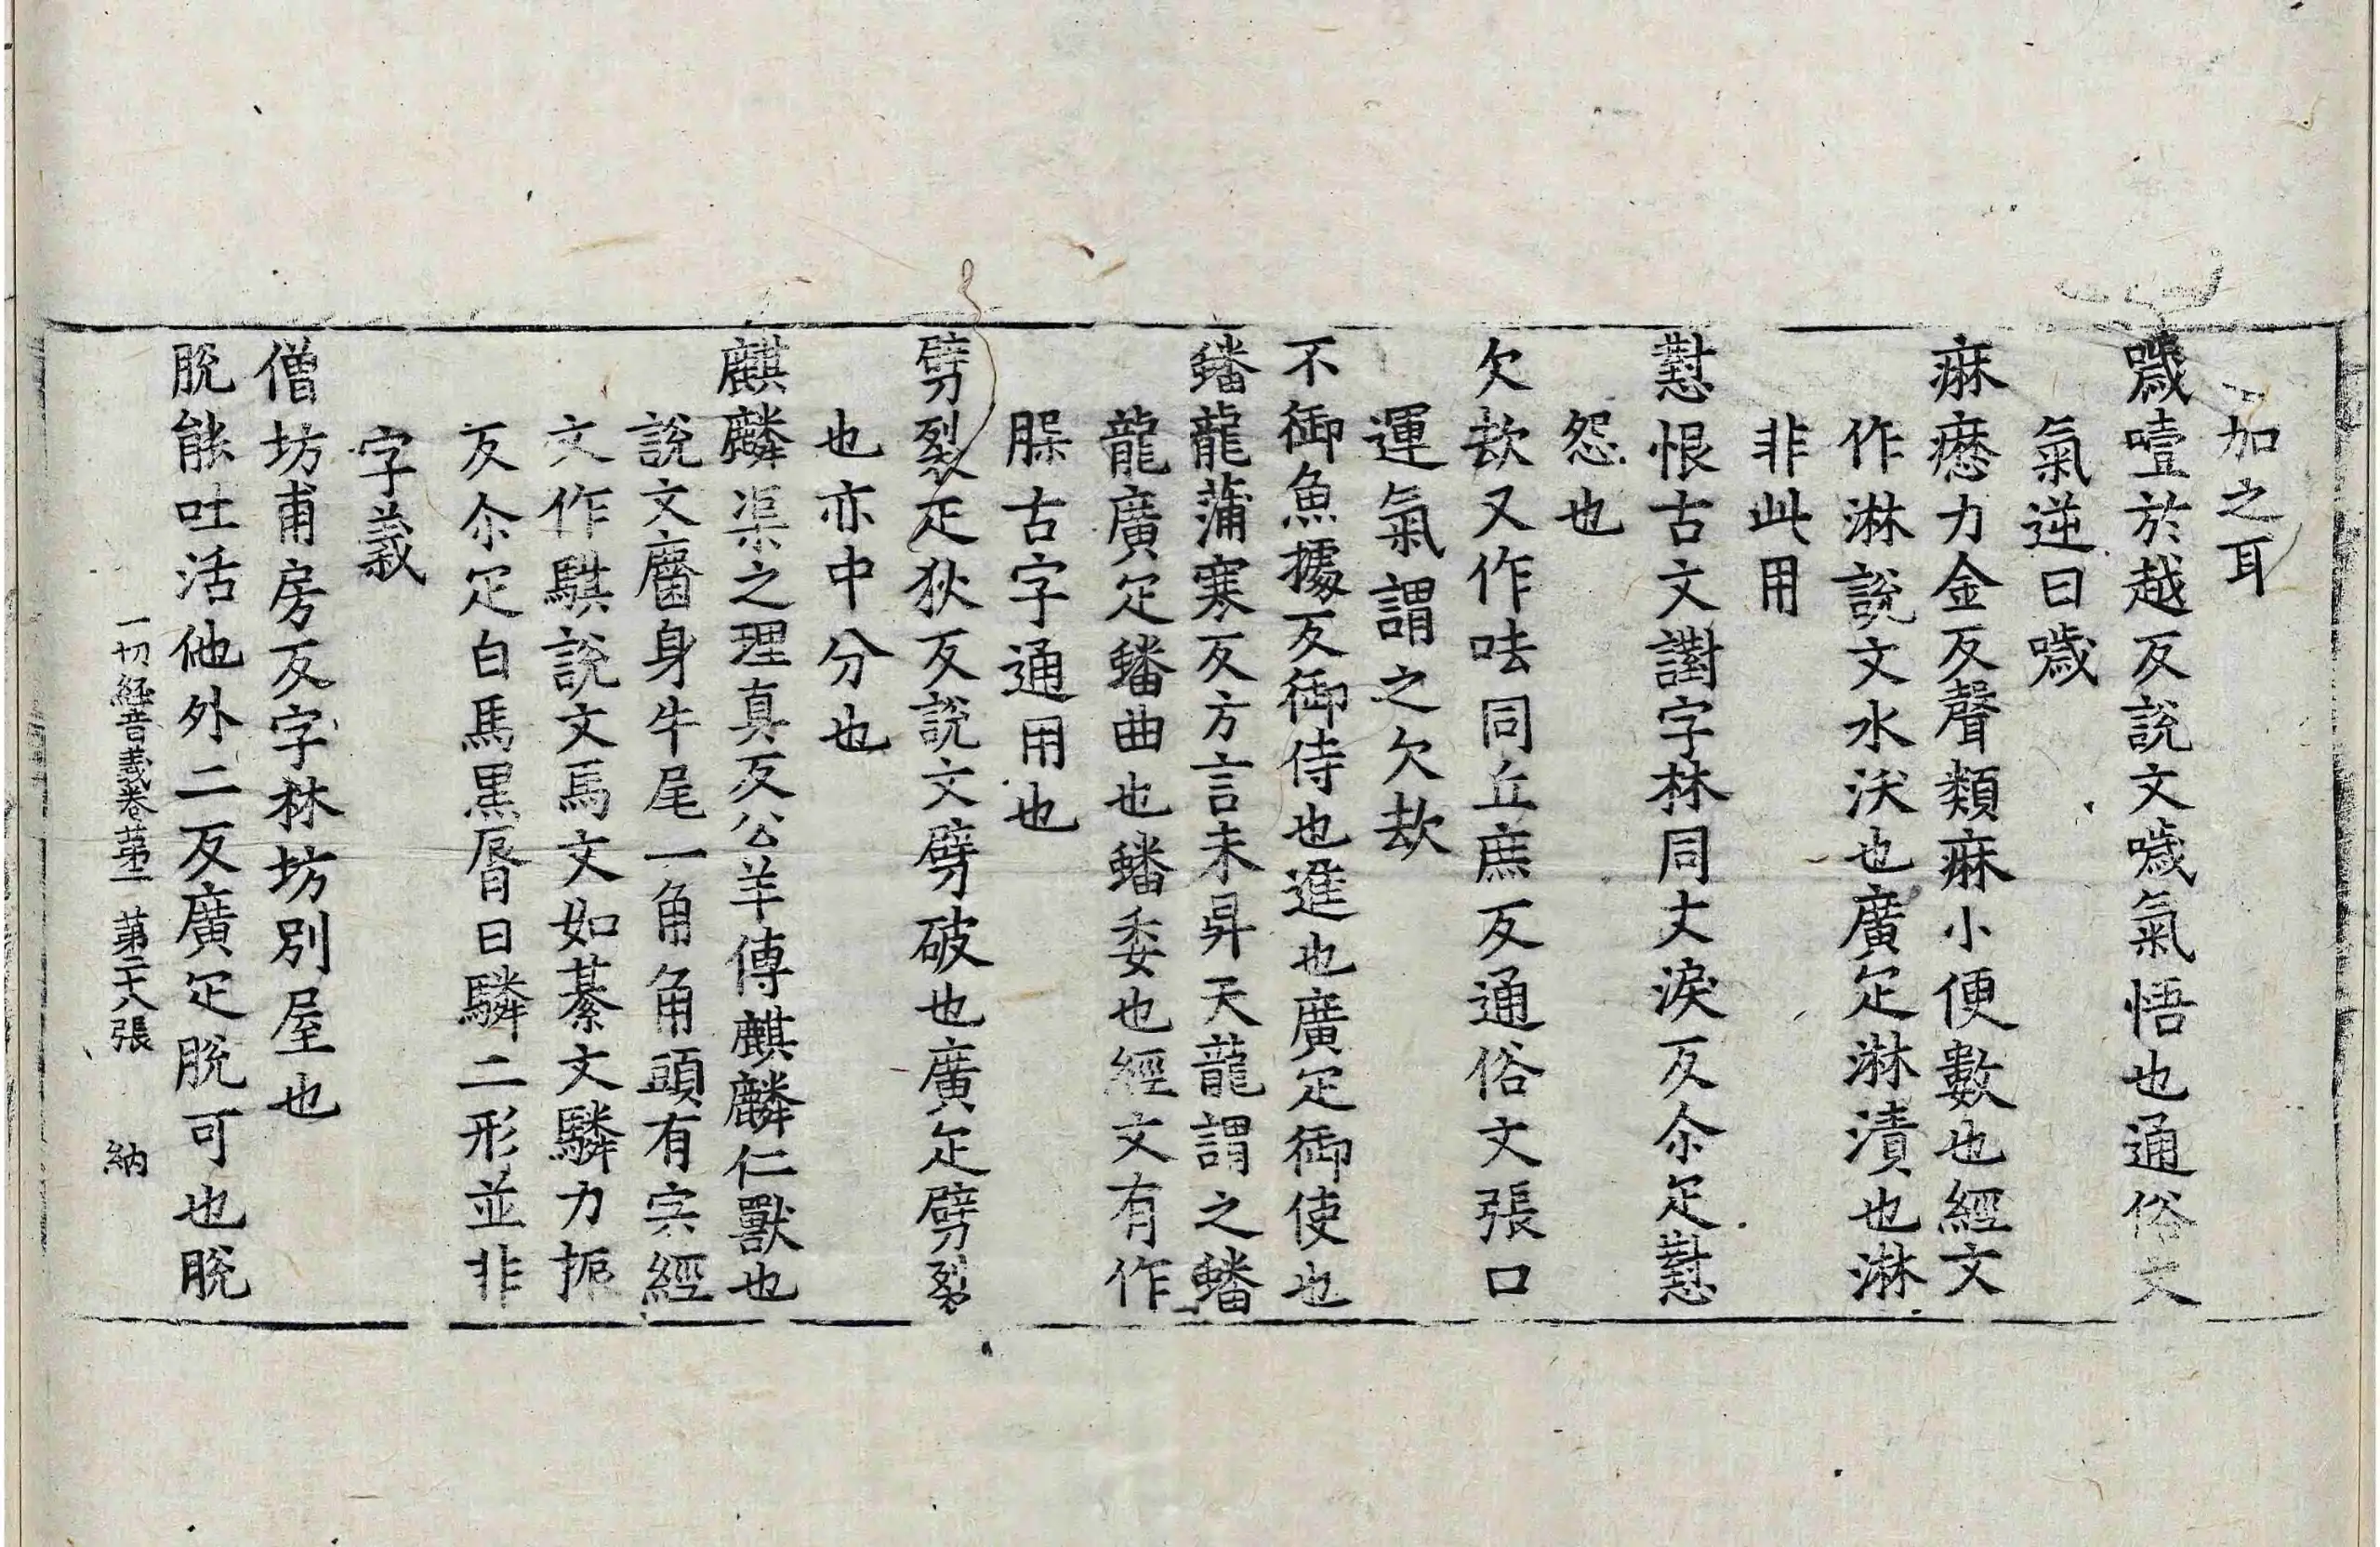 加之耳
噦噎於越反說文噦氣悟也通俗文
氣逆曰噦
痳癧力金反聲類痳小便數也經文
作淋說文水沃也廣疋淋漬也淋
非此用
懟恨古文譵字林同丈淚反尒疋懟
怨也
欠㰦又作呿同丘庶反通俗文張口
運氣謂之欠㰦
不御魚據反御侍也進也廣疋御使也
蟠龍蒲寒反方言未昇天龍謂之蟠
龍廣疋蟠曲也蟠委也經文有作
䏢古字通用也
劈裂疋狄反說文劈破也廣疋劈裂
也亦中分也
麒麟渠之理真反公羊傳麒麟仁獸也
說文麕身牛尾一角角頭有宍經
文作騏說文馬文如綦文驎力振
反尒疋白馬黑脣曰驎二形並非
字義
僧坊甫房反字林坊別屋也
脫能吐活他外二反廣疋脫可也脫
一切經音義卷第二 第二十八張 納